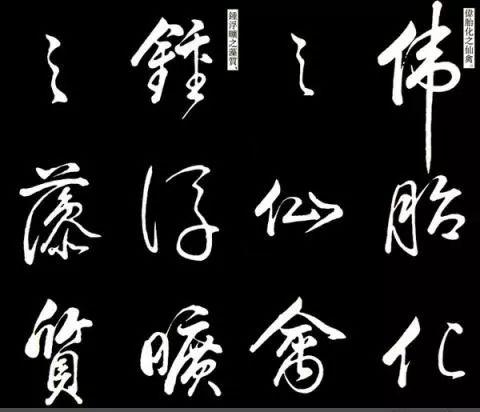 偉胎化之仙禽、
偉胎化
之仙禽
鍾浮曠之藻質、
鍾浮曠
之藻質